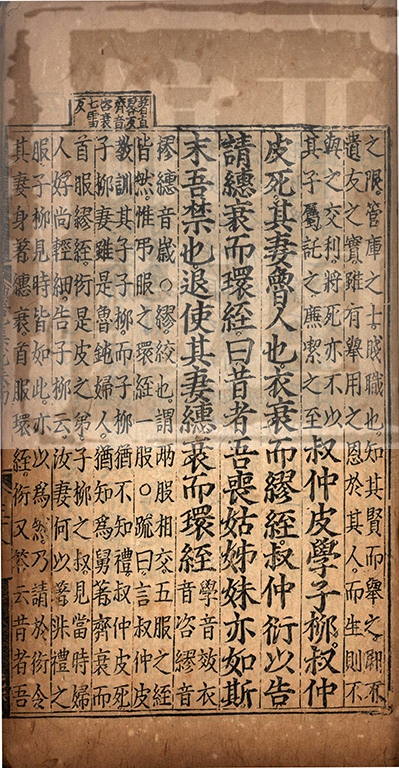 之限。管庫之士。賤職也知其賢而舉之。即不
遺友之實雖有舉用之恩於其人。而生則不
與之交利。將死亦不以
其子屬託之。廉潔之至
叔仲皮學子柳。叔仲
皮死。其妻魯人也。衣衰而繆絰。叔仲衍以告
請繐衰而環絰。曰昔者吾喪姑姊妹亦如斯
末吾禁也退使其妻繐衰而環絰
學音效衣
音咨繆音
繆繐音歲。○繆絞也。謂兩股相交。五服之絰
皆然。惟弔服之環絰一股。○疏曰。言叔仲皮
教訓其子子柳而子柳猶不知禮。叔仲皮死
子柳妻雖是魯鈍婦人。猶知為舅著齊衰而
首服繆絰。衍是皮之弟。子柳之叔見當時婦
人好尚輕細。告子柳云。汝妻何以著非禮之
服子柳見時皆如此。亦以為然。乃請於衍令
其妻身著繐衰。首服環絰。衍又荅云昔者吾